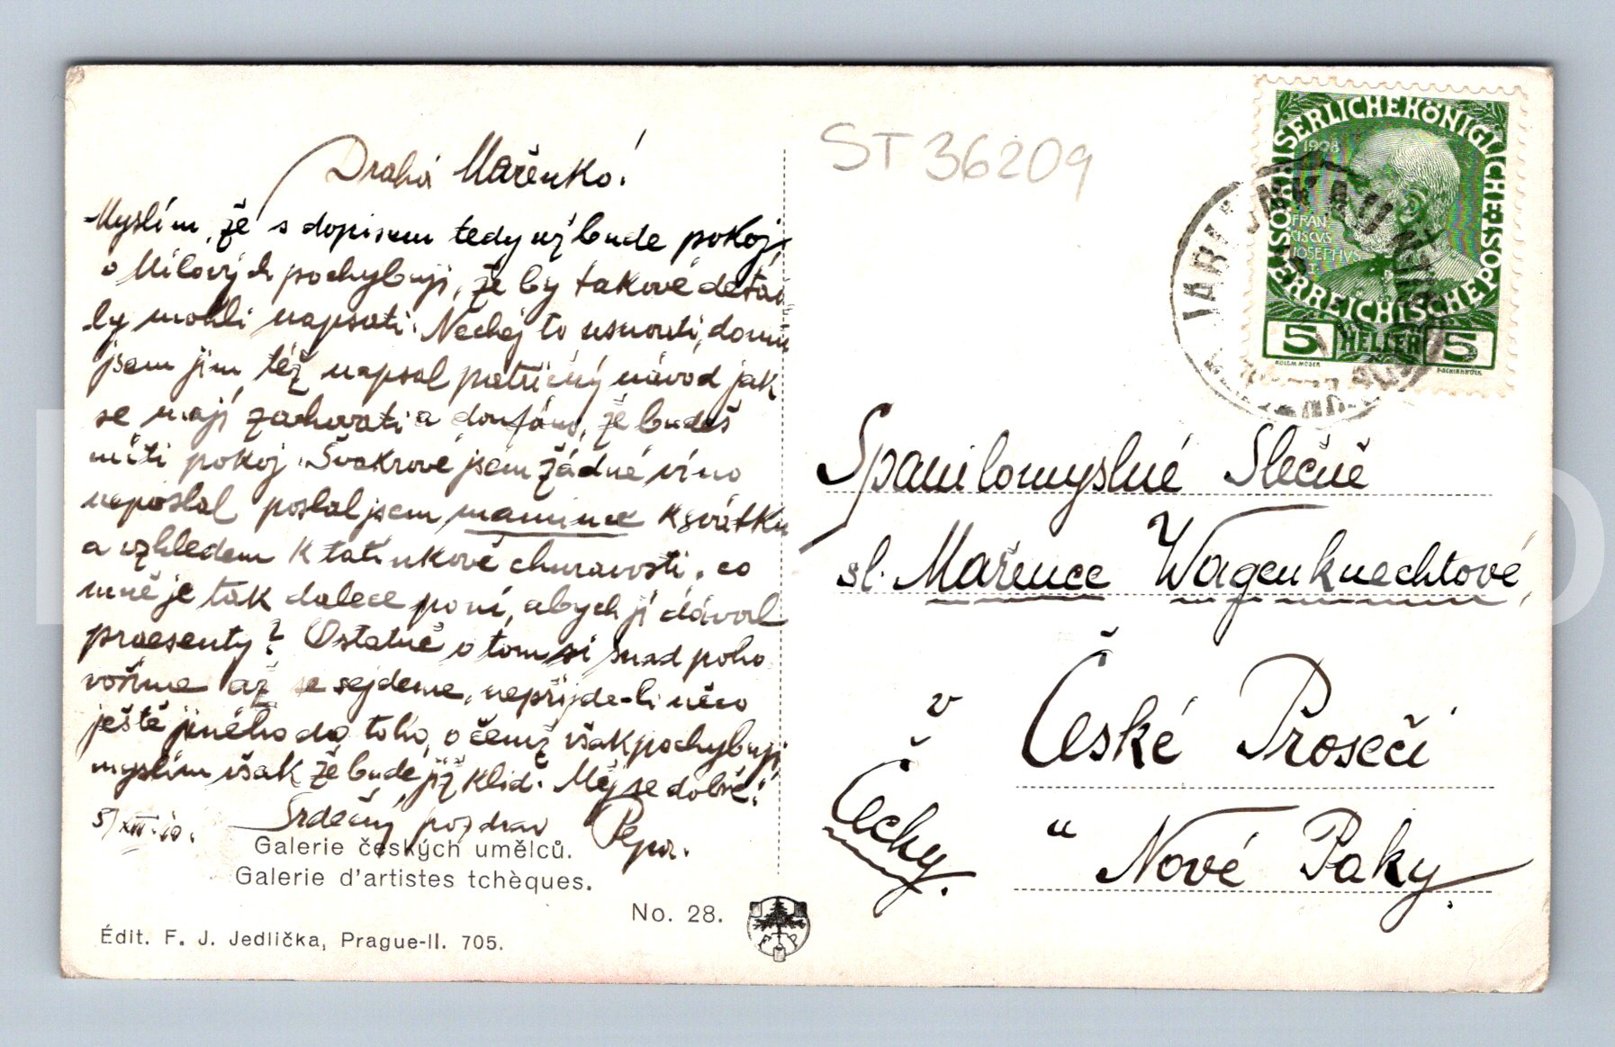 Drahá Mařenko!
Myslím, že s dopisem tedy už bude pokoj,
o Mílových pochybuji, že by takové detai
ly mohli napsati. Nechej to usnouti, domů
jsem jim též napsal patřičný návod jak
se mají zachovati a doufáme, že budeš
míti pokoj. Švakrové jsem žádné víno
neposlal poslal jsem mamince k svátku
a vzhledem k tatínkově churavosti. co
mně je tak dalece po ní, abych jí dával
praesenty? Ostatně o tom si snad poho
voříme až se sejdeme, nepřijde-li něco
ještě jiného do toho, o čemž však pochybuji
myslím však že bude již klid. Měj se dobře!
Srdečný pozdrav Pepa.
5/XII.10.
Galerie českých umělců.
Galerie d'artistes tchèques.
No. 28.
F P
Édit. F. J. Jedlička, Prague-II. 705.
ST 36209
KAISERLICHEKÖNIGLICHE
ÖSTERREICHISCHEPOST
1908
FRAN
CISCVS
IOSEPHVS
I
5 HELLER 5
KOLOM.MOSER
Spanilomyslné Slečně
sl. Mařence Wagenknechtové,
v České Proseči
" Nové Paky.
Čechy.